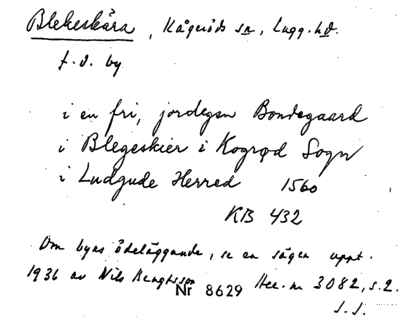 Blekeskära, Kågeröds sn, Lugg. hd.
f. d. by
i en fri, jordegen Bondegaard
i Blegeskier i Kogrød Sogn
i Ludgude Herred 1560
KB 432
Om byns ödeläggande, se en sägen uppt.
1936 av Nils Bengtsson Acc. nr 3082, s. 2.
Nr 8629
S. S.